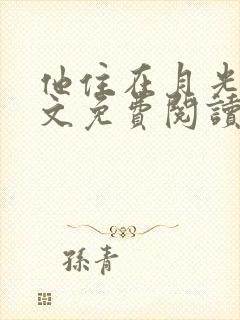 他住在月光
文免費閱讀
孫青